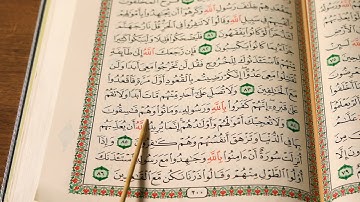 فَرِحَ ٱلْمُخَلَّفُونَ
خِلَٰفَ رَسُولِ ٱللَّهِ وَكَرِهُوٓا۟ أَن يُجَٰهِدُوا۟ بِأَمْوَٰلِهِمْ
وَأَنفُسِهِمْ فِى سَبِيلِ ٱللَّهِ وَقَالُوا۟ لَا تَنفِرُوا۟ فِى ٱلْحَرِّ قُلْ نَارُ جَهَنَّمَ
أَشَدُّ حَرًّا لَّوْ كَانُوا۟ يَفْقَهُونَ ٨١ فَلْيَضْحَكُوا۟ قَلِيلًا وَلْيَبْكُوا۟ كَثِيرًا
جَزَآءًۢ بِمَا كَانُوا۟ يَكْسِبُونَ ٨٢ فَإِن رَّجَعَكَ ٱللَّهُ إِلَىٰ طَآئِفَةٍ
مِّنْهُمْ فَٱسْتَـْٔذَنُوكَ لِلْخُرُوجِ فَقُل لَّن تَخْرُجُوا۟ مَعِىَ أَبَدًا وَلَن
تُقَٰتِلُوا۟ مَعِىَ عَدُوًّا إِنَّكُمْ رَضِيتُم بِٱلْقُعُودِ أَوَّلَ مَرَّةٍ فَٱقْعُدُوا۟
مَعَ ٱلْخَٰلِفِينَ ٨٣ وَلَا تُصَلِّ عَلَىٰٓ أَحَدٍ مِّنْهُم مَّاتَ أَبَدًا وَلَا تَقُمْ
عَلَىٰ قَبْرِهِۦٓ إِنَّهُمْ كَفَرُوا۟ بِٱللَّهِ وَرَسُولِهِۦ وَمَاتُوا۟ وَهُمْ فَٰسِقُونَ
٨٤ وَلَا تُعْجِبْكَ أَمْوَٰلُهُمْ وَأَوْلَٰدُهُمْ إِنَّمَا يُرِيدُ ٱللَّهُ أَن يُعَذِّبَهُم
بِهَا فِى ٱلدُّنْيَا وَتَزْهَقَ أَنفُسُهُمْ وَهُمْ كَٰفِرُونَ ٨٥ وَإِذَآ
أُنزِلَتْ سُورَةٌ أَنْ ءَامِنُوا۟ بِٱللَّهِ وَجَٰهِدُوا۟ مَعَ رَسُولِهِ ٱسْتَـْٔذَنَكَ
أُو۟لُوا۟ ٱلطَّوْلِ مِنْهُمْ وَقَالُوا۟ ذَرْنَا نَكُن مَّعَ ٱلْقَٰعِدِينَ ٨٦
٢٠٠